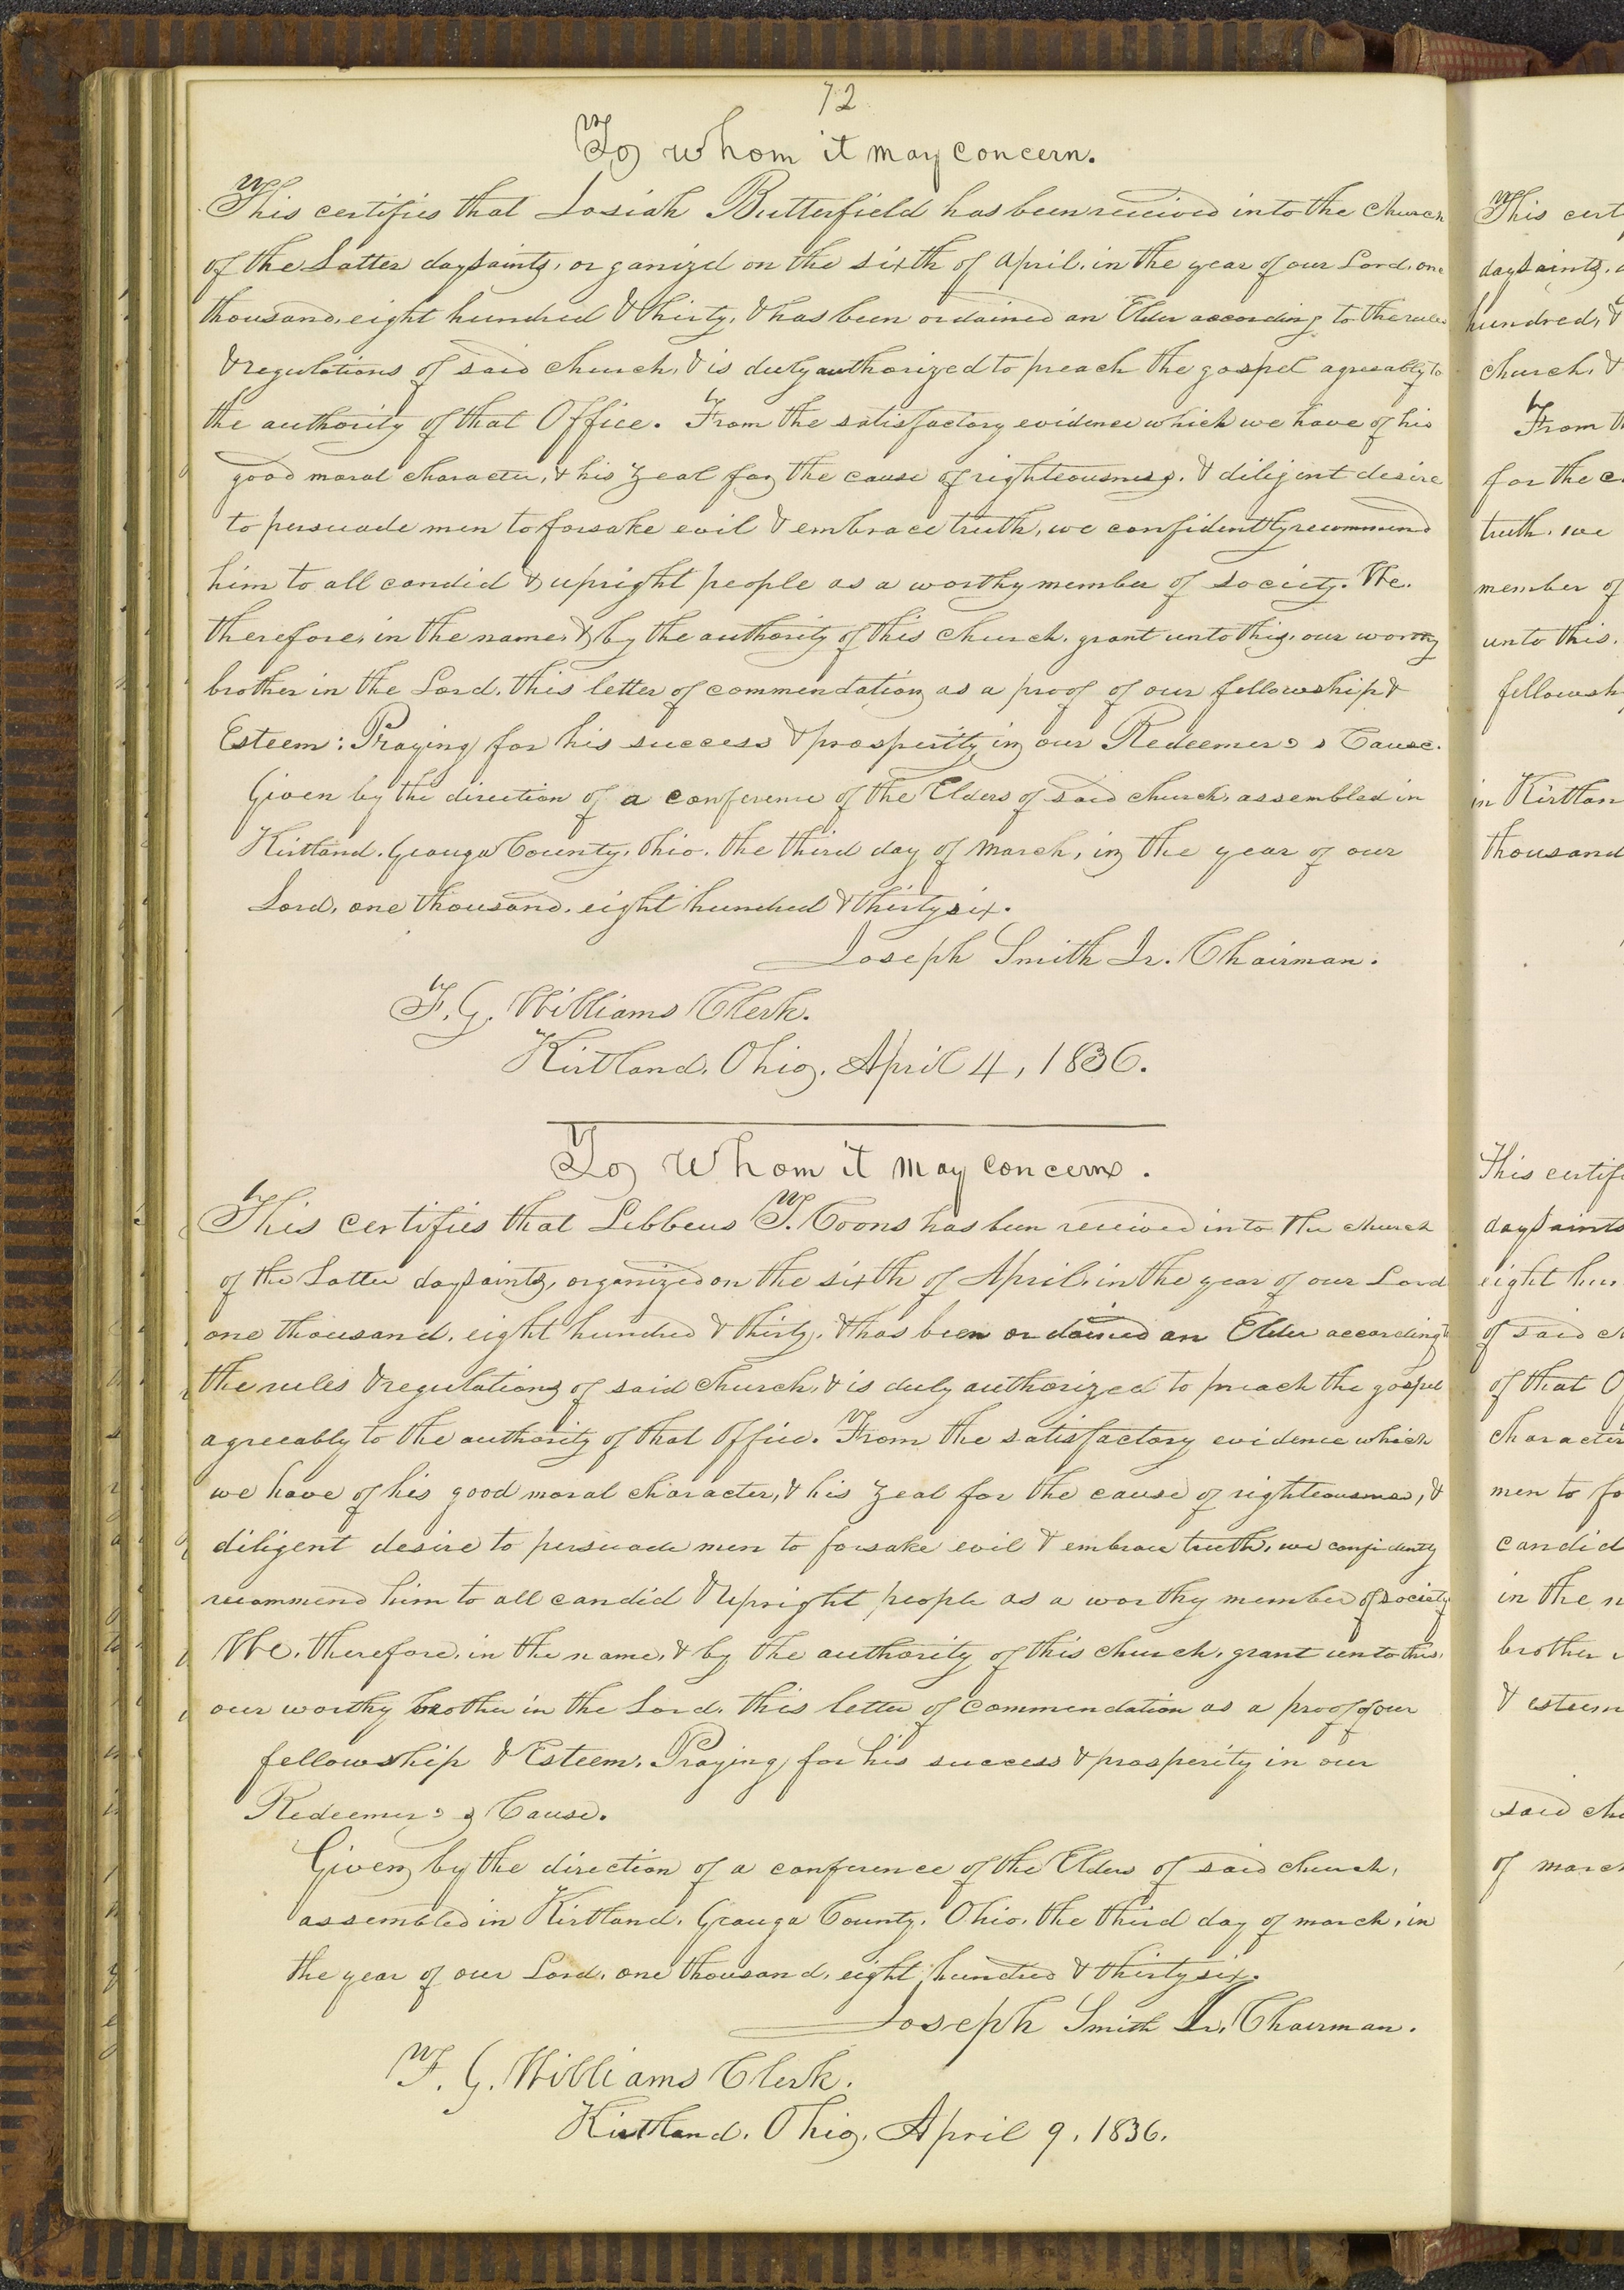 72
To whom it may concern.
This certifies that Josiah Butterfield has been received into the church
of the Latter day saints, organizd on the sixth of April, in the year of our Lord, one
thousand, eight hundred & thirty, & has been ordained an Elder according to the rules
& regulations of said church, & is duly authorized to preach the gospel agreeably to
the authority of that Office. From the satisfactory evidence which we have of his
good moral character, & his zeal for the cause of righteousness, & diligent desire
to persuade men to forsake evil & embrace truth, we confidently recommend
him to all candid & upright people as a worthy member of society. We,
therefore, in the name, & by the authority of this church, grant unto this, our worthy
brother in the Lord, this letter of commendation as a proof of our fellowship &
Esteem: Praying for his success & prosperity in our Redeemer's Cause.
Given by the direction of a conference of the Elders of said church, assembled in
Kirtland, Geauga County, Ohio, the third day of March, in the year of our
Lord, one thousand, eight hundred & thirty six.
Joseph Smith Jr. Chairman.
F. G. Williams Clerk.
Kirtland, Ohio, April 4, 1836.
To whom it may concern.
This certifies that Libbeus T. Coons has been received into the church
of the Latter day saints, organized on the sixth of April, in the year of our Lord
one thousand, eight hundred & thirty, & has been ordained an Elder according to
the rules & regulations of said church, & is duly authorized to preach the gospel
agreeably to the authority of that Office. From the satisfactory evidence which
we have of his good moral character, & his zeal for the cause of righteousness, &
diligent desire to persuade men to forsake evil & embrace truth, we confidently
recommend him to all candid & upright people as a worthy member of society
We, therefore, in the name, & by the authority of this church, grant unto this,
our worthy brother in the Lord, this letter of commendation as a proof of our
fellowship & Esteem, Praying for his success & prosperity in our
Redeemer's Cause.
Given by the direction of a conference of the Elders of said church,
assembled in Kirtland, Geauga County, Ohio, the third day of march, in
the year of our Lord, one thousand, eight hundred & thirty six.
Joseph Smith Jr. Chairman.
F. G. Williams Clerk.
Kirtland, Ohio, April 9, 1836.
This cert
day saints,
hundred, &
church, &
From th
for the c
truth, we
member of
unto this,
fellowsh
in Kirtlan
thousand
This certifi
day saints
eight hun
of said c
of that O
character
men to fo
candid
in the n
brother i
& esteem
said chu
of march